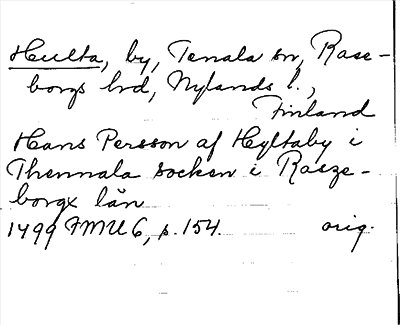 Hulta, by, Tenala sn, Rase-
borgs hd, Nylands l.,
Finland
Hans Persson af Hyltaby i
Thennala socken i Rasze-
borgx län
1499 FMU 6, p. 154. orig.